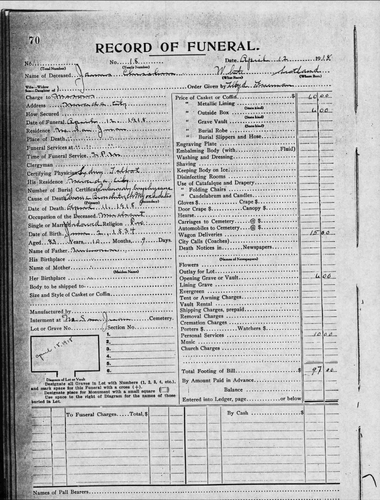 70
RECORD OF FUNERAL.
No. No. 18 Date April 12 1918
(Total Number) (Yearly Number)
Name of Deceased James White Scotland
(What Race) (Where Born)
Order Given by Freeman
Charge to
Address Nevada City
How Secured
Date of Funeral April 12 1918
Residence San Juan
Place of Death
Funeral Services at
Time of Funeral Service 2 P.M.
Clergyman
Certifying Physician Sydney Talbot
His Residence Nevada City
Number of Burial Certificate
Cause of Death
Date of Death April 11, 1918
Occupation of the Deceased Merchant
Single or Married Religion
Date of Birth June 2 1834
Aged 83 Years, 10 Months, 9 Days.
Name of Father Unknown
His Birthplace
Name of Mother
(Maiden Name)
Her Birthplace
Body to be Shipped to
Size and Style of Casket or Coffin
Manufactured by
Interment at San Juan Cemetery.
Lot or Grave No. Section No.
1.
2.
3.
4.
5.
6.
Diagram of Lot or Vault
Designate all Graves in Lot with Numbers (1, 2, 3, 4, etc.), and mark space for this Funeral with a cross (+).
Designate place for Monument with a small square □
Use space to right of Diagram for the names of those buried in Lot.
Price of Casket or Coffin $ 60 00
" Metallic Lining
" Outside Box 6 00
" Grave Vault
" Burial Robe
" Burial Slippers and Hose
Engraving Plate
Embalming Body (with Fluid)
Washing and Dressing
Shaving
Keeping Body on Ice
Disinfecting Rooms
Use of Catafalque and Drapery
" Folding Chairs
" Candelabrum and Candles
Gloves $ Crape $
Door Crape $ Canopy $
Hearse
Carriages to Cemetery @ $
Automobiles to Cemetery @ $
Wagon Deliveries 15 00
City Calls (Coaches)
Death Notices in Newspapers
(Names of Newspapers)
Flowers
Outlay for Lot
Opening Grave or Vault 6 00
Lining Grave
Evergreen
Tent or Awning Charges
Vault Rental
Shipping Charges, prepaid
Removal Charges
Cremation Charges
Porters $ Watchers $
Personal Services 10 00
Music
Church Charges
Total Footing of Bill $ 97 00
By Amount Paid in Advance
Balance
Entered into Ledger, page or below.
To Funeral Charges. Total, $ By Cash $
Names of Pall Bearers